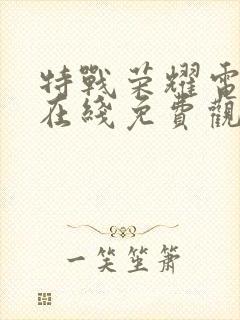 特戰荣耀電
在綫免費觀
一笑笙簫